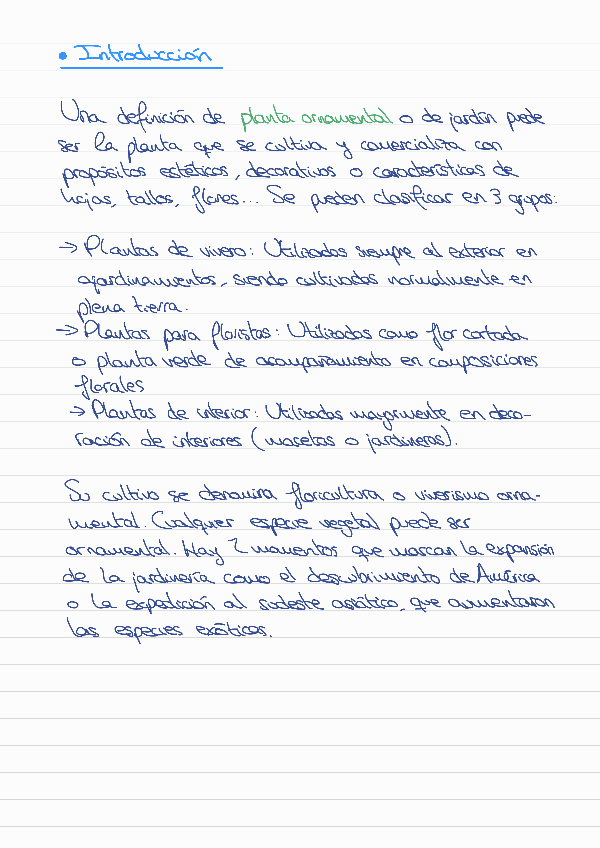 • Introducción
Una definición de planta ornamental o de jardín puede
ser la planta que se cultiva y comercializa con
propósitos estéticos, decorativos o características de
hojas, tallos, flores... Se pueden clasificar en 3 grupos:
→ Plantas de vivero: Utilizadas siempre al exterior en
ajardinamientos, siendo cultivadas normalmente en
plena tierra.
→ Plantas para floristas: Utilizadas como flor cortada
o planta verde de acompañamiento en composiciones
florales
→ Plantas de interior: Utilizadas mayormente en deco-
ración de interiores (macetas o jardineras).
Su cultivo se denomina floricultura o viverismo orna-
mental. Cualquier especie vegetal puede ser
ornamental. Hay 2 momentos que marcan la expansión
de la jardinería como el descubrimiento de América
o la expedición al sudeste asiático, que aumentaron
las especies exóticas.